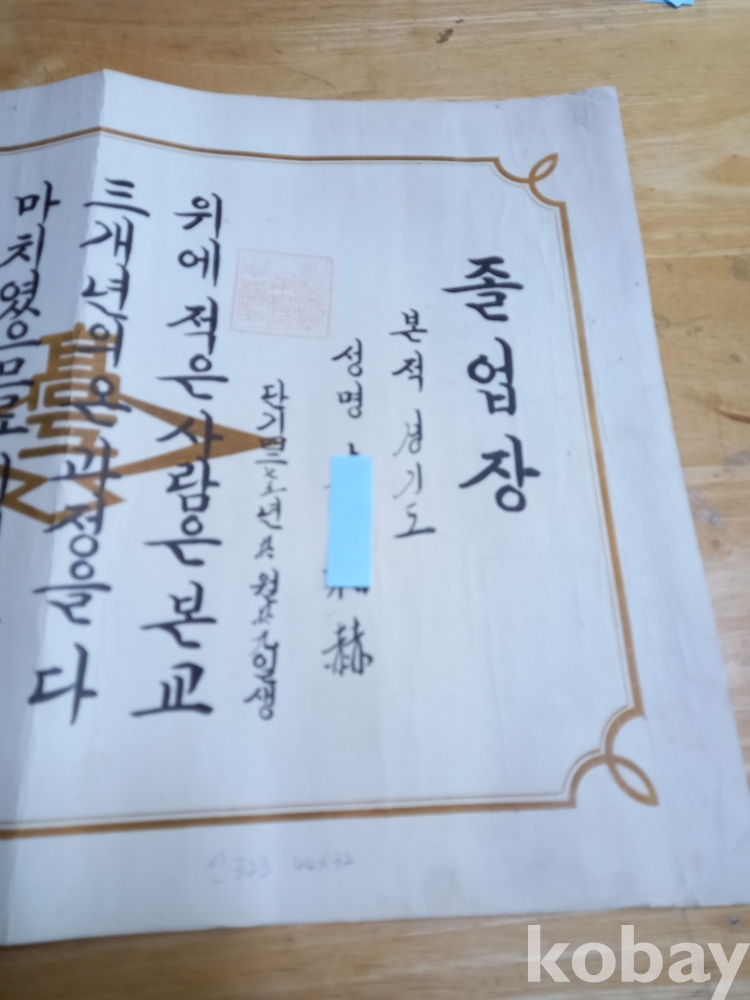 졸업장
본적 경기도
성명 赫
단기四二七 년 월 일생
위에 적은 사람은 본교
三개년의 온 과정을 다
마치였으므로
高
323 44×32
kobay